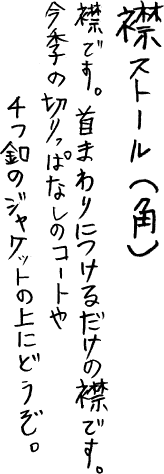 襟ストール(角)
襟です。首まわりにつけるだけの襟です。
今季の切りっぱなしのコートや
4つ釦のジャケットの上にどうぞ。